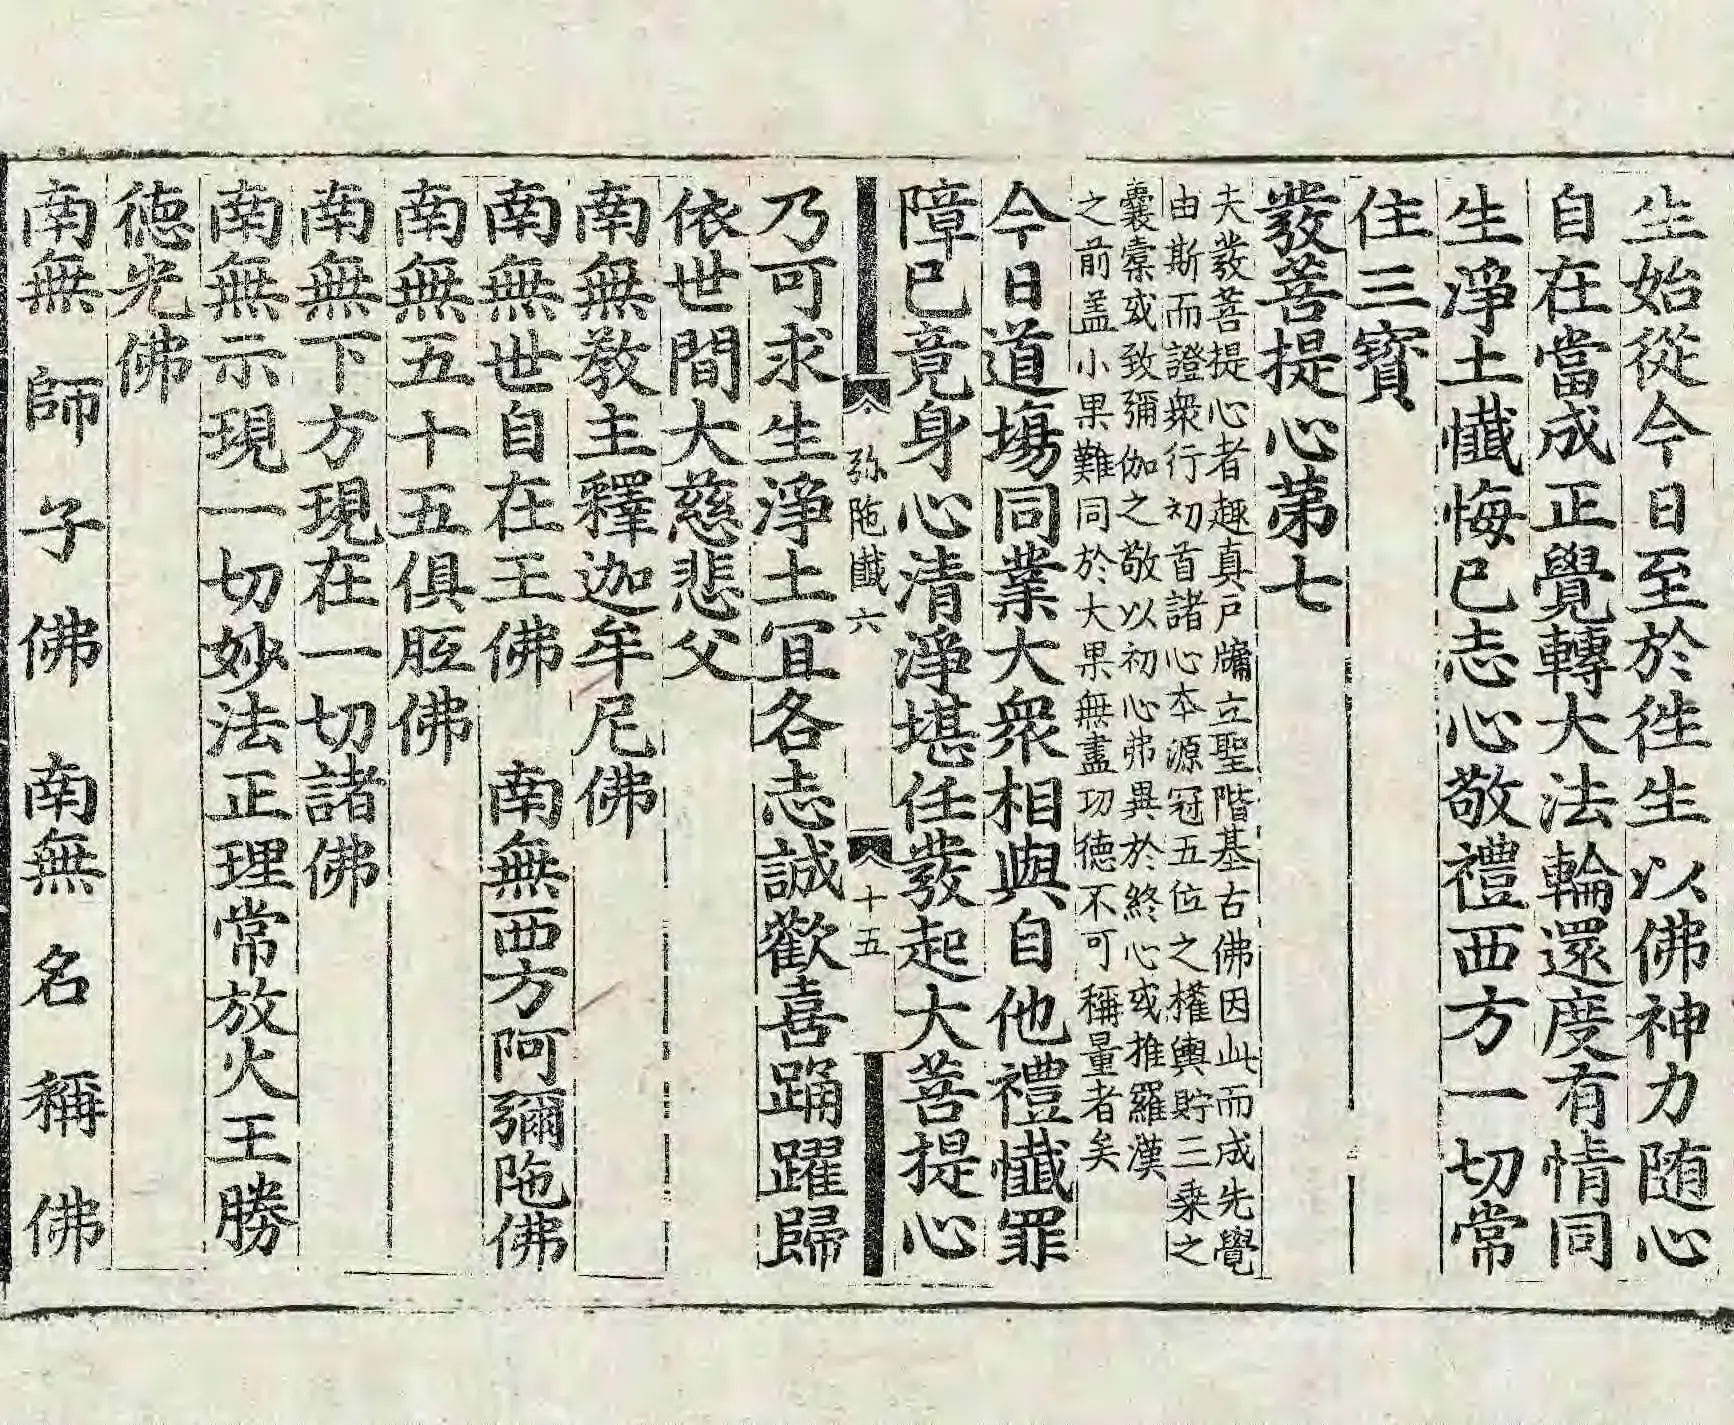 生始從今日至於徃生以佛神力随心
自在當成正覺轉大法輪還度有情同
生淨土懴悔已志心敬禮西方一切常
住三寳
發菩提心第七
夫發菩提心者趣真戸牗立聖階基古佛因此而成先覺
由斯而證衆行初首諸心本源冠五位之權輿貯三乗之
囊橐或致彌伽之敬以初心弗異於終心或推羅漢
之前盖小果難同於大果無盡功德不可稱量者矣
今日道場同業大衆相與自他禮懴罪
障已竟身心清淨堪任發起大菩提心
弥陁懴六 十五
乃可求生淨土宜各志誠歡喜踊躍歸
依世間大慈悲父
南無教主釋迦牟尼佛
南無世自在王佛 南無西方阿彌陁佛
南無五十五俱胝佛
南無下方現在一切諸佛
南無示現一切妙法正理常放火王勝
德光佛
南無師子佛 南無名稱佛